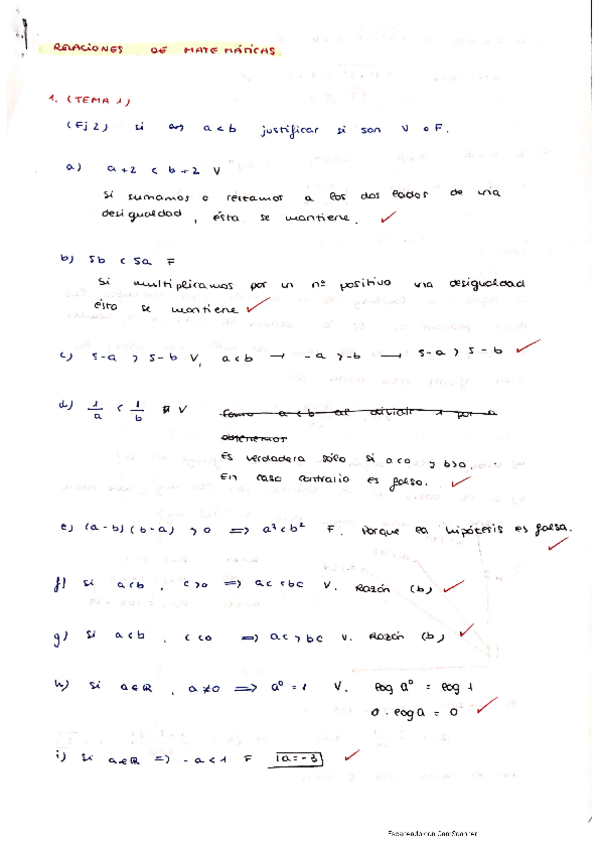 RELACIONES DE MATEMÁTICAS.
1. (TEMA 1)
(Ej 2) si a<b justificar si son V o F.
a) a+2 < b+2 V
Si sumamos o restamos a los dos lados de una
desigualdad, ésta se mantiene.
b) 5b < 5a F
Si multiplicamos por un nº positivo una desigualdad
ésta se mantiene
c) 5-a > 5-b V, a<b → -a>-b → 5-a > 5-b
d) 1/a < 1/b V como a<b al dividir 1 por a
obtenemos
Es verdadera sólo si a<0 y b>0.
En caso contrario es falso.
e) (a-b)(b-a) >0 => a²<b² F. Porque la hipótesis es falsa.
f) Si a<b, c>0 => ac<bc V. Razón (b)
g) Si a<b, c<0 => ac>bc V. Razón (b)
h) Si a∈R, a≠0 => a⁰=1 V. log a⁰ = log 1
0·log a = 0
i) Si a∈R => -a<1 F a=-3
Escaneado con CamScanner